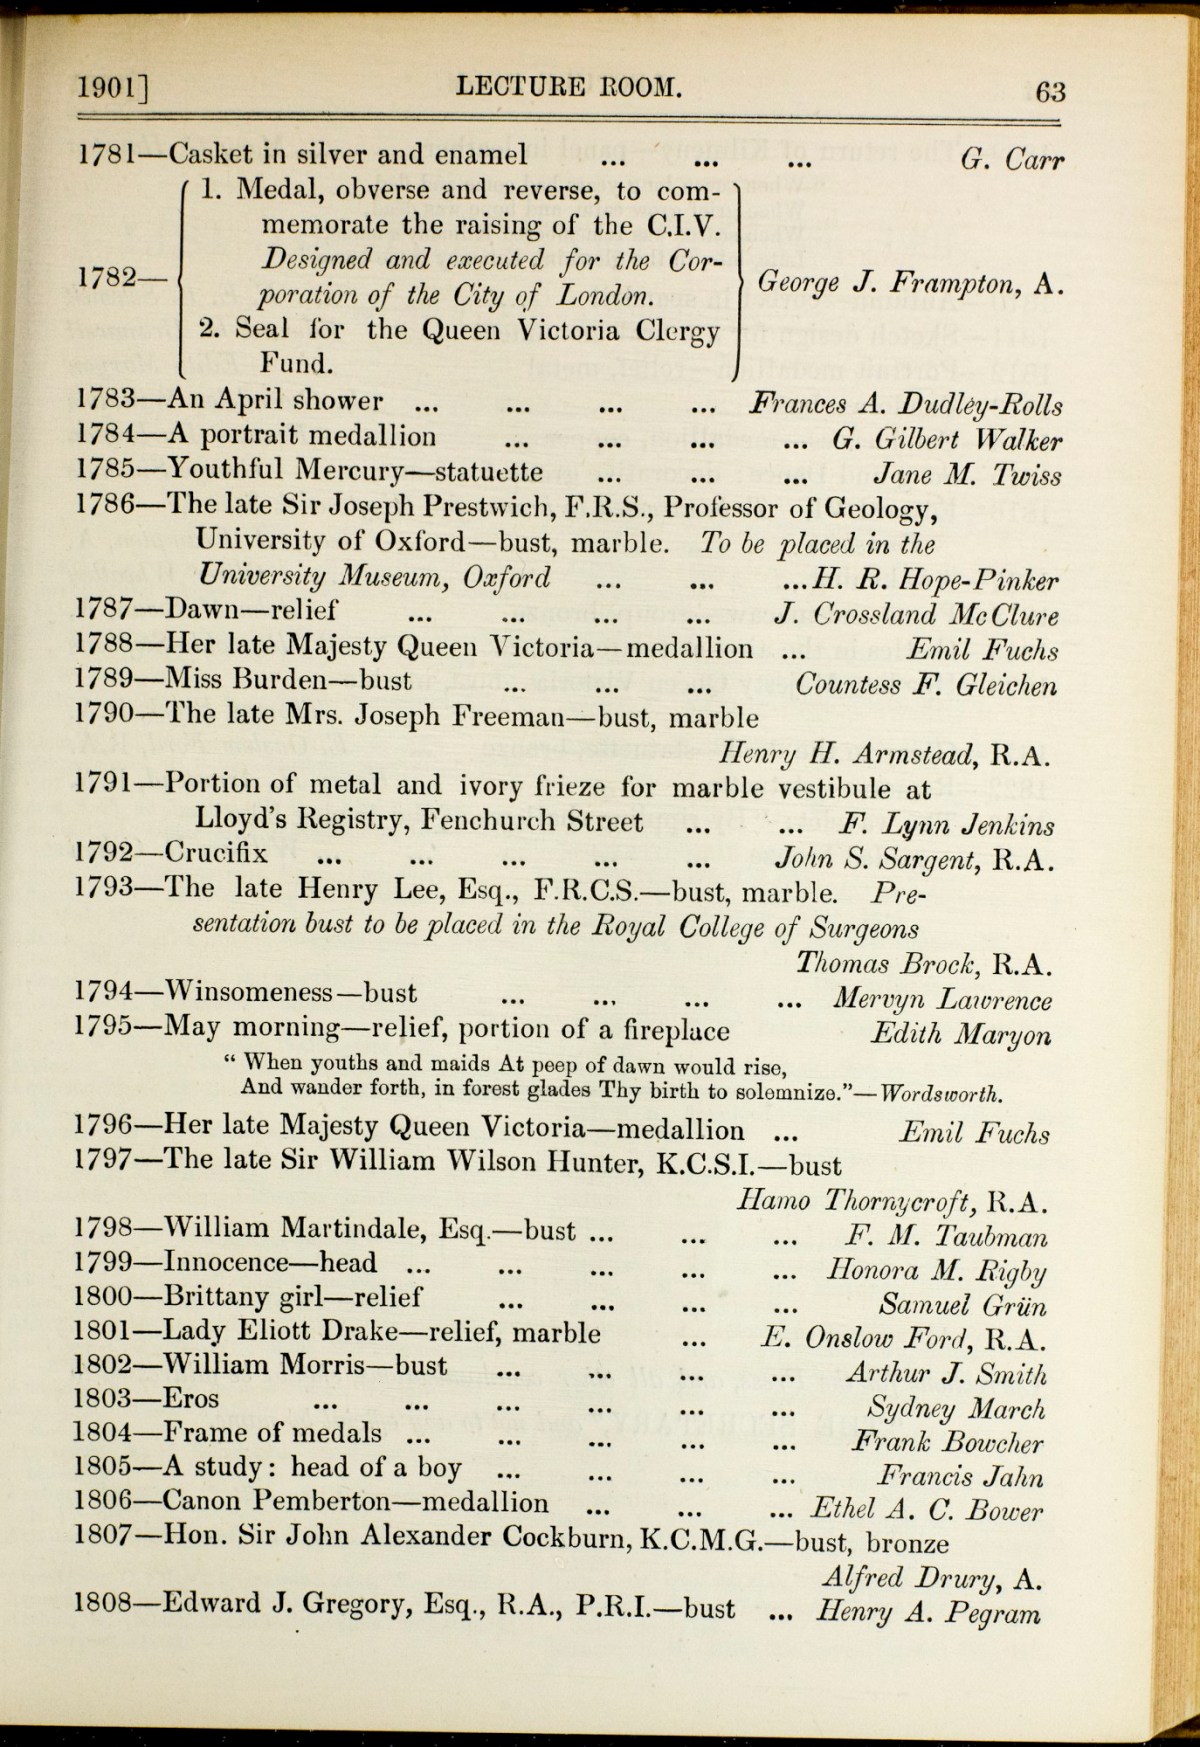 1901] LECTURE ROOM. 63
1781—Casket in silver and enamel ... ... ... G. Carr
1782—
1. Medal, obverse and reverse, to com-
memorate the raising of the C.I.V.
Designed and executed for the Cor-
poration of the City of London.
2. Seal for the Queen Victoria Clergy
Fund.
George J. Frampton, A.
1783—An April shower ... ... ... ... Frances A. Dudley-Rolls
1784—A portrait medallion ... ... ... ... G. Gilbert Walker
1785—Youthful Mercury—statuette ... ... ... Jane M. Twiss
1786—The late Sir Joseph Prestwich, F.R.S., Professor of Geology,
University of Oxford—bust, marble. To be placed in the
University Museum, Oxford ... ... ... H. R. Hope-Pinker
1787—Dawn—relief ... ... ... ... J. Crossland McClure
1788—Her late Majesty Queen Victoria—medallion ... Emil Fuchs
1789—Miss Burden—bust ... ... ... Countess F. Gleichen
1790—The late Mrs. Joseph Freeman—bust, marble
Henry H. Armstead, R.A.
1791—Portion of metal and ivory frieze for marble vestibule at
Lloyd's Registry, Fenchurch Street ... ... F. Lynn Jenkins
1792—Crucifix ... ... ... ... ... John S. Sargent, R.A.
1793—The late Henry Lee, Esq., F.R.C.S.—bust, marble. Pre-
sentation bust to be placed in the Royal College of Surgeons
Thomas Brock, R.A.
1794—Winsomeness—bust ... ... ... ... Mervyn Lawrence
1795—May morning—relief, portion of a fireplace Edith Maryon
" When youths and maids At peep of dawn would rise,
And wander forth, in forest glades Thy birth to solemnize."—Wordsworth.
1796—Her late Majesty Queen Victoria—medallion ... Emil Fuchs
1797—The late Sir William Wilson Hunter, K.C.S.I.—bust
Hamo Thornycroft, R.A.
1798—William Martindale, Esq.—bust ... ... ... F. M. Taubman
1799—Innocence—head ... ... ... ... ... Honora M. Rigby
1800—Brittany girl—relief ... ... ... ... Samuel Grün
1801—Lady Eliott Drake—relief, marble ... E. Onslow Ford, R.A.
1802—William Morris—bust ... ... ... ... Arthur J. Smith
1803—Eros ... ... ... ... ... ... Sydney March
1804—Frame of medals ... ... ... ... ... Frank Bowcher
1805—A study: head of a boy ... ... ... ... Francis Jahn
1806—Canon Pemberton—medallion ... ... ... Ethel A. C. Bower
1807—Hon. Sir John Alexander Cockburn, K.C.M.G.—bust, bronze
Alfred Drury, A.
1808—Edward J. Gregory, Esq., R.A., P.R.I.—bust ... Henry A. Pegram